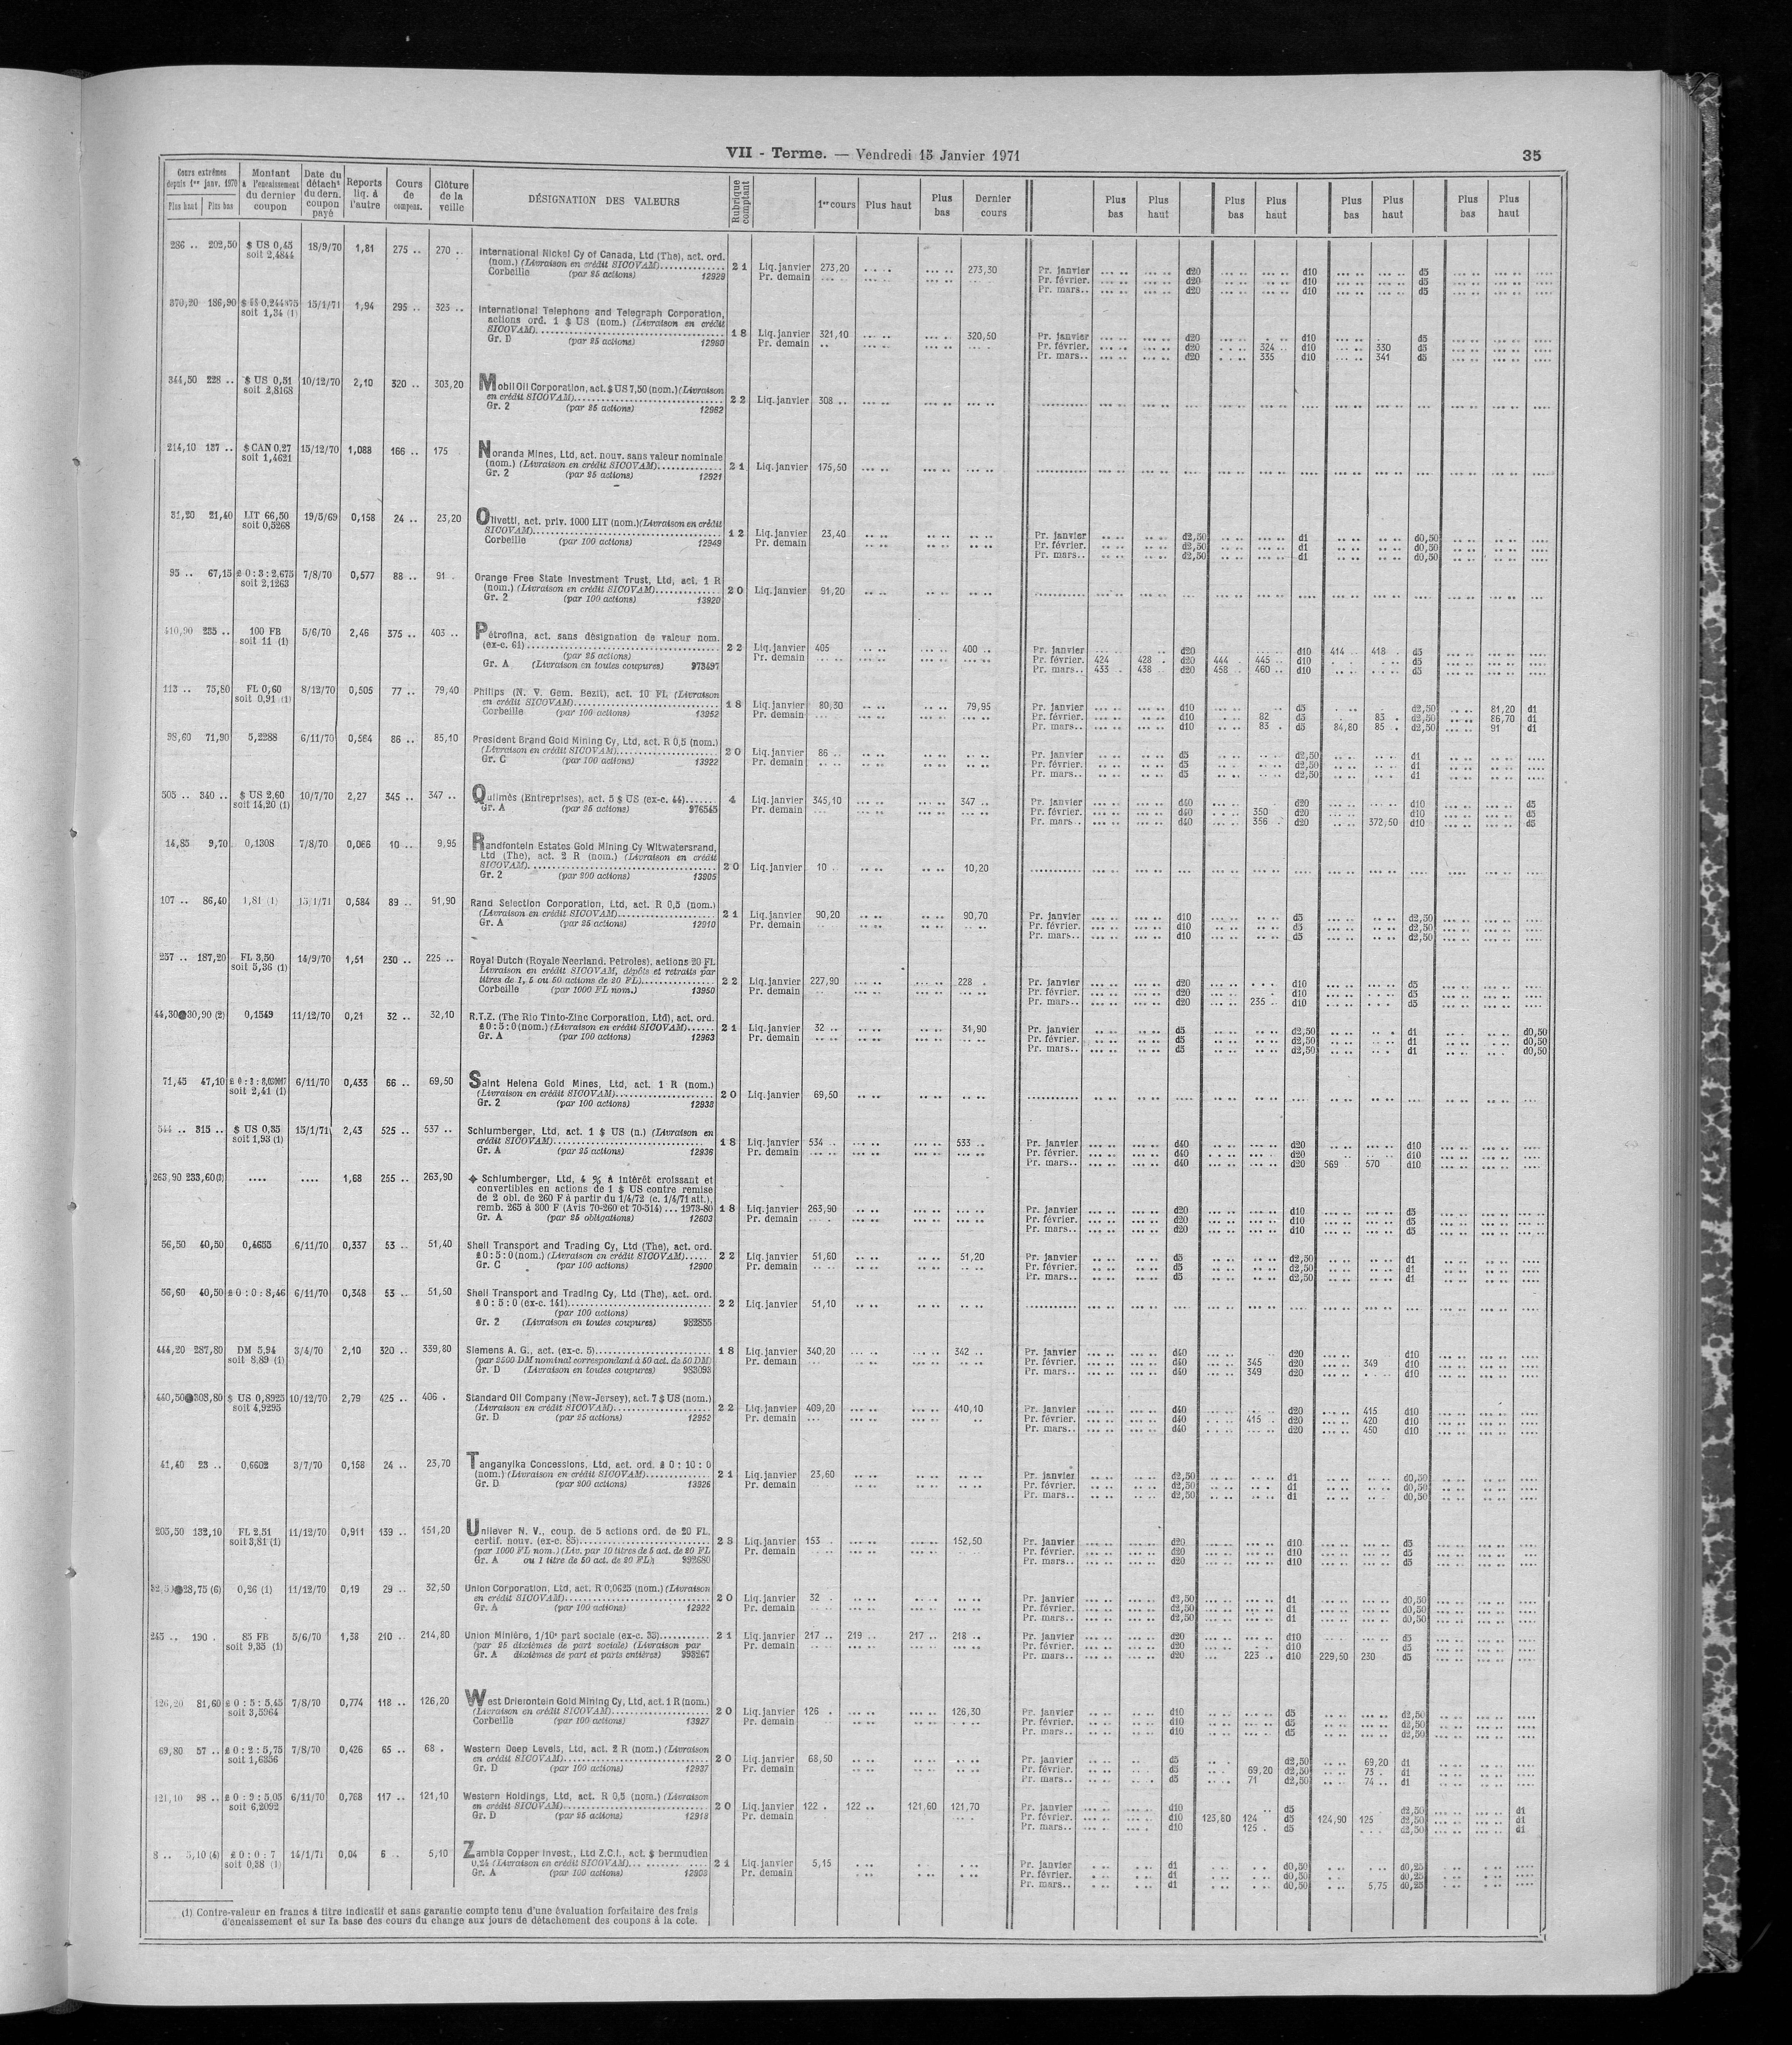 VII - Terme. — Vendredi 15 Janvier 1971 35
Cours extrêmes depuis 1er janv. 1970 Plus haut Plus bas | Montant à l'encaissement du dernier coupon | Date du détacht du dern. coupon payé | Reports liq. à l'autre | Cours de compens. | Clôture de la veille | DÉSIGNATION DES VALEURS | Rubrique comptant | 1er cours | Plus haut | Plus bas | Dernier cours | Plus bas | Plus haut | Plus bas | Plus haut | Plus bas | Plus haut | Plus bas | Plus haut
286 .. 202,50 $ US 0,45 18/9/70 1,81 275 .. 270 .. International Nickel Cy of Canada, Ltd (The), act. ord.
soit 2,4844 (nom.) (Livraison en crédit SICOVAM) 21 Liq. janvier 273,20 273,30 Pr. janvier d20 d10 d5
Corbeille (par 25 actions) 12929 Pr. demain Pr. février. d20 d10 d5
Pr. mars.. d20 d10 d5
370,20 186,90 15/1/71 1,94 295 .. 323 .. International Telephone and Telegraph Corporation,
soit 1,34 (1) actions ord. 1 $ US (nom.) (Livraison en crédit
SICOVAM) 18 Liq. janvier 321,10 320,50 Pr. janvier d20 d10 d5
Gr. D (par 25 actions) 12960 Pr. demain Pr. février. d20 324 .. d10 330 d5
Pr. mars.. d20 335 d10 341 d5
344,50 228 .. $ US 0,51 10/12/70 2,10 320 .. 303,20 Mobil Oil Corporation, act. $ US 7,50 (nom.) (Livraison
soit 2,8168 en crédit SICOVAM) 22 Liq. janvier 308 ..
Gr. 2 (par 25 actions) 12962
214,10 137 .. $ CAN 0,27 15/12/70 1,088 166 .. 175 Noranda Mines, Ltd, act. nouv. sans valeur nominale
soit 1,4621 (nom.) (Livraison en crédit SICOVAM) 21 Liq. janvier 175,50
Gr. 2 (par 25 actions) 12921
31,20 21,40 LIT 66,50 19/5/69 0,158 24 .. 23,20 Olivetti, act. priv. 1000 LIT (nom.) (Livraison en crédit
soit 0,5268 SICOVAM) 12 Liq. janvier 23,40 Pr. janvier d2,50 d1 d0,50
Corbeille (par 100 actions) 12949 Pr. demain Pr. février. d2,50 d1 d0,50
Pr. mars.. d2,50 d1 d0,50
95 .. 67,15 £ 0 : 3 : 2,675 7/8/70 0,577 88 .. 91 . Orange Free State Investment Trust, Ltd, act. 1 R
soit 2,1263 (nom.) (Livraison en crédit SICOVAM) 20 Liq. janvier 91,20
Gr. 2 (par 100 actions) 13920
410,90 235 .. 100 FB 5/6/70 2,46 375 .. 403 .. Pétrofina, act. sans désignation de valeur nom.
soit 11 (1) (ex-c. 61) 22 Liq. janvier 405 400 .. Pr. janvier d20 d10 414 .. 418 . d5
(par 25 actions) Pr. demain Pr. février. 424 428 . d20 444 . 445 .. d10 d5
Gr. A (Livraison en toutes coupures) 973497 Pr. mars.. 433 . 438 .. d20 458 .. 460 .. d10 d5
113 .. 75,80 FL 0,60 8/12/70 0,505 77 .. 79,40 Philips (N. V. Gem. Bezit), act. 10 FL (Livraison
soit 0,91 (1) en crédit SICOVAM) 18 Liq. janvier 80,30 79,95 Pr. janvier d10 d5 d2,50 81,20 d1
Corbeille (par 100 actions) 13952 Pr. demain Pr. février. d10 82 d5 83 . d2,50 86,70 d1
Pr. mars.. d10 83 . d5 84,80 85 . d2,50 91 d1
98,60 71,90 5,2288 6/11/70 0,564 86 .. 85,10 President Brand Gold Mining Cy, Ltd, act. R 0,5 (nom.)
(Livraison en crédit SICOVAM) 20 Liq. janvier 86 .. Pr. janvier d5 d2,50 d1
Gr. C (par 100 actions) 13922 Pr. demain Pr. février. d5 d2,50 d1
Pr. mars.. d5 d2,50 d1
505 .. 340 .. $ US 2,60 10/7/70 2,27 345 .. 347 .. Quilmès (Entreprises), act. 5 $ US (ex-c. 44) 4 Liq. janvier 345,10 347 .. Pr. janvier d40 d20 d10 d5
soit 14,20 (1) Gr. A (par 25 actions) 976545 Pr. demain Pr. février. d40 350 d20 d10 d5
Pr. mars.. d40 356 . d20 372,50 d10 d5
14,85 9,70 0,1308 7/8/70 0,066 10 .. 9,95 Randfontein Estates Gold Mining Cy Witwatersrand,
Ltd (The), act. 2 R (nom.) (Livraison en crédit
SICOVAM) 20 Liq. janvier 10 .. 10,20
Gr. 2 (par 200 actions) 13905
107 .. 86,40 1,81 (1) 15/1/71 0,584 89 .. 91,90 Rand Selection Corporation, Ltd, act. R 0,5 (nom.)
(Livraison en crédit SICOVAM) 21 Liq. janvier 90,20 90,70 Pr. janvier d10 d5 d2,50
Gr. A (par 25 actions) 12910 Pr. demain Pr. février. d10 d5 d2,50
Pr. mars.. d10 d5 d2,50
257 .. 187,20 FL 3,50 14/9/70 1,51 230 .. 225 .. Royal Dutch (Royale Neerland. Petroles), actions 20 FL
soit 5,36 (1) Livraison en crédit SICOVAM, dépôts et retraits par
titres de 1, 5 ou 50 actions de 20 FL) 22 Liq. janvier 227,90 228 . Pr. janvier d20 d10 d5
Corbeille (par 1000 FL nom.) 13950 Pr. demain Pr. février. d20 d10 d5
Pr. mars.. d20 235 .. d10 d5
44,30●30,90 (2) 0,1549 11/12/70 0,21 32 .. 32,10 R.T.Z. (The Rio Tinto-Zinc Corporation, Ltd), act. ord.
£ 0 : 5 : 0 (nom.) (Livraison en crédit SICOVAM) 21 Liq. janvier 32 .. 31,90 Pr. janvier d5 d2,50 d1 d0,50
Gr. A (par 100 actions) 12963 Pr. demain Pr. février. d5 d2,50 d1 d0,50
Pr. mars.. d5 d2,50 d1 d0,50
71,45 47,10 6/11/70 0,433 66 .. 69,50 Saint Helena Gold Mines, Ltd, act. 1 R (nom.)
soit 2,41 (1) (Livraison en crédit SICOVAM) 20 Liq. janvier 69,50
Gr. 2 (par 100 actions) 12938
544 .. 315 .. $ US 0,35 15/1/71 2,43 525 .. 537 .. Schlumberger, Ltd, act. 1 $ US (n.) (Livraison en
soit 1,93 (1) crédit SICOVAM) 18 Liq. janvier 534 .. 533 .. Pr. janvier d40 d20 d10
Gr. A (par 25 actions) 12936 Pr. demain Pr. février. d40 d20 d10
Pr. mars.. d40 d20 569 570 d10
263,90 233,60(3) .... .... 1,68 255 .. 263,90 ◆ Schlumberger, Ltd, 4 % à intérêt croissant et
convertibles en actions de 1 $ US contre remise
de 2 obl. de 260 F à partir du 1/4/72 (c. 1/4/71 att.),
remb. 265 à 300 F (Avis 70-260 et 70-514) ... 1973-80 18 Liq. janvier 263,90 Pr. janvier d20 d10 d5
Gr. A (par 25 obligations) 12603 Pr. demain Pr. février. d20 d10 d5
Pr. mars.. d20 d10 d5
56,50 40,50 0,4655 6/11/70 0,337 53 .. 51,40 Shell Transport and Trading Cy, Ltd (The), act. ord.
£ 0 : 5 : 0 (nom.) (Livraison en crédit SICOVAM) 22 Liq. janvier 51,60 51,20 Pr. janvier d5 d2,50 d1
Gr. C (par 100 actions) 12900 Pr. demain Pr. février. d5 d2,50 d1
Pr. mars.. d5 d2,50 d1
56,60 40,50 £ 0 : 0 : 8,46 6/11/70 0,348 53 .. 51,50 Shell Transport and Trading Cy, Ltd (The), act. ord.
£ 0 : 5 : 0 (ex-c. 141) 22 Liq. janvier 51,10
(par 100 actions)
Gr. 2 (Livraison en toutes coupures) 982855
444,20 287,80 DM 5,94 3/4/70 2,10 320 .. 339,80 Siemens A. G., act. (ex-c. 5) 18 Liq. janvier 340,20 342 .. Pr. janvier d40 d20 d10
soit 8,89 (1) (par 2500 DM nominal correspondant à 50 act. de 50 DM) Pr. demain Pr. février. d40 345 d20 349 d10
Gr. D (Livraison en toutes coupures) 983093 Pr. mars.. d40 349 d20 d10
440,50●308,80 $ US 0,8925 10/12/70 2,79 425 .. 406 . Standard Oil Company (New-Jersey), act. 7 $ US (nom.)
soit 4,9295 (Livraison en crédit SICOVAM) 22 Liq. janvier 409,20 410,10 Pr. janvier d40 d20 415 d10
Gr. D (par 25 actions) 12952 Pr. demain Pr. février. d40 415 .. d20 420 d10
Pr. mars.. d40 d20 450 d10
41,40 23 .. 0,6602 3/7/70 0,158 24 .. 23,70 Tanganyika Concessions, Ltd, act. ord. £ 0 : 10 : 0
(nom.) (Livraison en crédit SICOVAM) 21 Liq. janvier 23,60 Pr. janvier d2,50 d1 d0,50
Gr. D (par 200 actions) 13926 Pr. demain Pr. février. d2,50 d1 d0,50
Pr. mars.. d2,50 d1 d0,50
205,50 132,10 FL 2,51 11/12/70 0,911 139 .. 151,20 Unilever N. V., coup. de 5 actions ord. de 20 FL,
soit 3,81 (1) certif. nouv. (ex-c. 85) 23 Liq. janvier 153 .. 152,50 Pr. janvier d20 d10 d5
(par 1000 FL nom.) (Liv. par 10 titres de 5 act. de 20 FL Pr. demain Pr. février. d20 d10 d5
Gr. A ou 1 titre de 50 act. de 20 FL) 992680 Pr. mars.. d20 d10 d5
●28,75 (6) 0,26 (1) 11/12/70 0,19 29 .. 32,50 Union Corporation, Ltd, act. R 0,0625 (nom.) (Livraison
en crédit SICOVAM) 20 Liq. janvier 32 . Pr. janvier d2,50 d1 d0,50
Gr. A (par 100 actions) 12922 Pr. demain Pr. février. d2,50 d1 d0,50
Pr. mars.. d2,50 d1 d0,50
245 .. 190 . 85 FB 5/6/70 1,38 210 .. 214,80 Union Minière, 1/10e part sociale (ex-c. 33) 21 Liq. janvier 217 .. 219 .. 217 .. 218 .. Pr. janvier d20 d10 d5
soit 9,35 (1) (par 25 dixièmes de part sociale) (Livraison par Pr. demain Pr. février. d20 d10 d5
Gr. A dixièmes de part et parts entières) 993267 Pr. mars.. d20 223 .. d10 229,50 230 d5
126,20 81,60 £ 0 : 5 : 5,45 7/8/70 0,774 118 .. 126,20 West Driefontein Gold Mining Cy, Ltd, act. 1 R (nom.)
soit 3,5964 (Livraison en crédit SICOVAM) 20 Liq. janvier 126 . 126,30 Pr. janvier d10 d5 d2,50
Corbeille (par 100 actions) 13927 Pr. demain Pr. février. d10 d5 d2,50
Pr. mars.. d10 d5 d2,50
69,80 57 .. £ 0 : 2 : 5,75 7/8/70 0,426 65 .. 68 . Western Deep Levels, Ltd, act. 2 R (nom.) (Livraison
soit 1,6356 en crédit SICOVAM) 20 Liq. janvier 68,50 Pr. janvier d5 d2,50 69,20 d1
Gr. D (par 100 actions) 12937 Pr. demain Pr. février. d5 69,20 d2,50 73 . d1
Pr. mars.. d5 71 d2,50 74 .. d1
121,10 98 .. £ 0 : 9 : 5,05 6/11/70 0,768 117 .. 121,10 Western Holdings, Ltd, act. R 0,5 (nom.) (Livraison
soit 6,2092 en crédit SICOVAM) 20 Liq. janvier 122 . 122 .. 121,60 121,70 Pr. janvier d10 d5 d2,50 d1
Gr. D (par 25 actions) 12918 Pr. demain Pr. février. d10 123,80 124 d5 124,90 125 d2,50 d1
Pr. mars.. d10 125 . d5 d2,50 d1
8 .. 5,10 (4) £ 0 : 0 : 7 14/1/71 0,04 6 .. 5,10 Zambia Copper Invest., Ltd Z.C.I., act. $ bermudien
soit 0,38 (1) 0,24 (Livraison en crédit SICOVAM) 21 Liq. janvier 5,15 Pr. janvier d1 d0,50 d0,25
Gr. A (par 100 actions) 12903 Pr. demain Pr. février. d1 d0,50 d0,25
Pr. mars.. d1 d0,50 5,75 d0,25
(1) Contre-valeur en francs à titre indicatif et sans garantie compte tenu d'une évaluation forfaitaire des frais
d'encaissement et sur la base des cours du change aux jours de détachement des coupons à la cote.